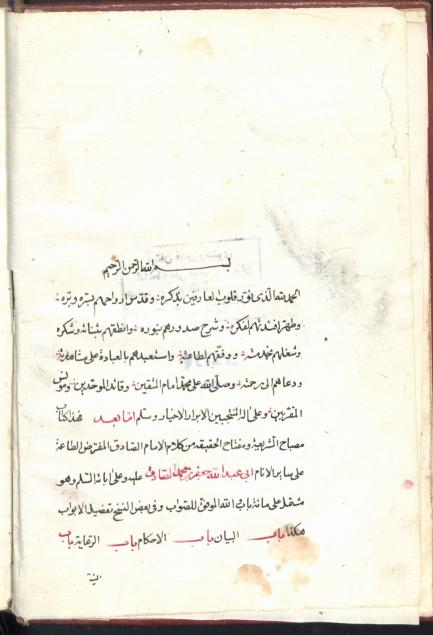 بسم الله الرحمن الرحيم
الحمد لله الذى نور قلوب العارفين بذكره وقدس ارواحهم بسره وبره
وطهر افئدتهم لفكره وشرح صدورهم بنوره وانطقهم بثنائه وشكره
وشغلهم بخدمته ووفقهم لطاعته واستعبدهم بالعبادة على مشاهدته
ودعاهم الى رحمته وصلى الله على محمد امام المتقين وقائد الموحدين ومونس
المقربين وعلى اله المنتجبين الابرار الاخيار وسلم اما بعد فهذا كتاب
مصباح الشريعة ومفتاح الحقيقة من كلام الامام الصادق المفترض الطاعة
على سائر الانام ابى عبد الله جعفر بن محمد الصادق عليه وعلى ابائه السلم وهو
مشتمل على مائة باب الله الموفق للصواب وفى بعض النسخ تفصيل الابواب
هكذا باب البيان باب الاحكام باب الرعاية باب
النية